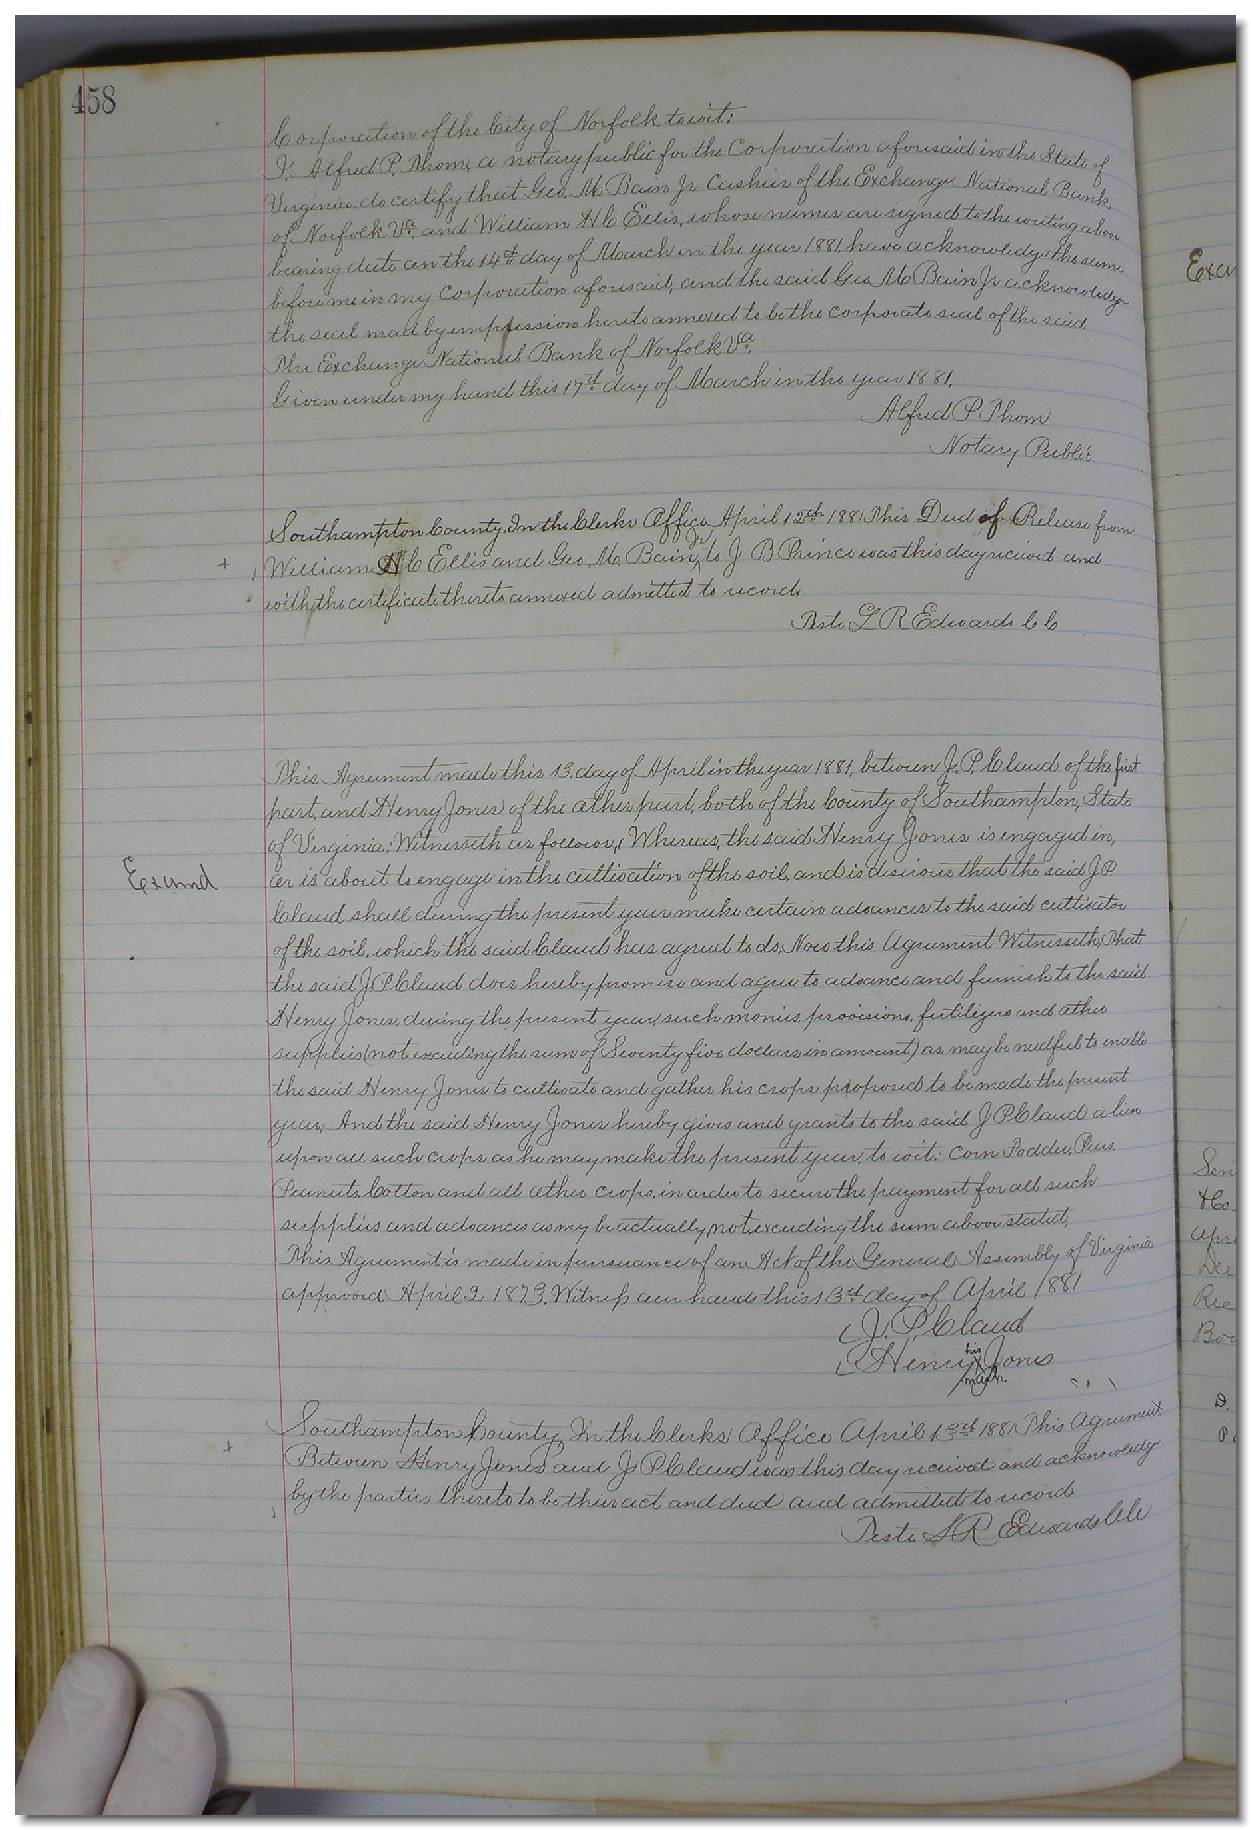 458
Corporation of the City of Norfolk to wit:
I, Alfred P. Thom, a notary public for the Corporation aforesaid in the State of
Virginia do certify that Geo. M Bain Jr Cashier of the Exchange National Bank
of Norfolk Va. and William H C Ellis, whose names are signed to the writing above
bearing date on the 14th day of March in the year 1881, have acknowledge the same
before me in my Corporation aforesaid, and the said Geo M Bain Jr acknowledge
the seal mad by impression hereto annexed to be the corporate seal of the said
The Exchange National Bank of Norfolk Va.
Given under my hand this 17th day of March in the year 1881.
Alfred P. Thom
Notary Public
Southampton County. In the Clerks Office April 12th 1881 This Deed of Release from
+ William H C Ellis and Geo M Bain Jr to J B Prince was this day recieved and
with the certificate thereto annexed admitted to record
Teste L R Edwards C C
This Agreement made this 13. day of April in the year 1881, between J. P. Claud of the first
part, and Henry Jones of the other part, both of the County of Southampton, State
of Virginia: Witnesseth as follows, Whereas, the said Henry Jones is engaged in,
Examd
or is about to engage in the cultivation of the soil, and is desirous that the said J P
Claud shall during the present year make certain advances to the said cultivator
of the soil, which the said Claud has agreed to do, Now this Agreement Witnesseth, That
the said J P Claud does hereby promise and agree to advance and furnish to the said
Henry Jones, during the present year, such monies, provisions, fertilizers and other
supplies (not exceeding the sum of Seventy five dollars in amount) as may be needful to enable
the said Henry Jones to cultivate and gather his crops proposed to be made the present
year, And the said Henry Jones hereby gives and grants to the said J P Claud a lien
upon all such crops as he may make the present year, to wit: Corn Fodder, Peas
Peanuts, Cotton and all other crops, in order to secure the payment for all such
supplies and advances as my be actually, not exceeding the sum above stated,
This Agreement is made in pursuance of an Act of the General Assembly of Virginia
approved April 2 1873. Witness our hands this 13th day of April 1881
J. P. Claud
Henry his Jones
mark
Southampton County In the Clerks Office April 13th 1881 This Agreement
+ Between Henry Jones and J P Claud was this day recieved and acknowledg
by the parties thereto to be their act and deed and admitted to record
Teste L R Edwards C C